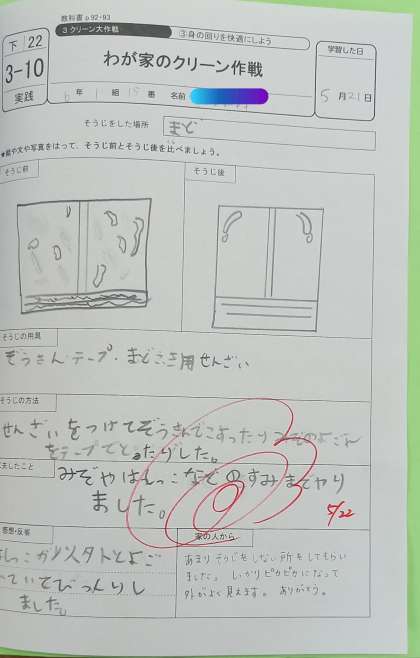 教科書 p.92・93
下 22
3 クリーン大作戦
③身の回りを快適にしよう
3-10
実践
わが家のクリーン作戦
学習した日
5月21日
6年 1組 15番 名前
そうじをした場所 まど
★絵や文や写真をはって、そうじ前とそうじ後を比べましょう。
そうじ前
そうじ後
そうじの用具
ぞうきん・テープ・まどふき用せんざい
そうじの方法
せんざいをつけてぞうきんでこすったりみぞのよごれ
をテープでとったりした。
夫したこと
みぞやはしっこなどのすみまでやり
ました。
5/22
感想・反省
はしっこが以外とよご
れていてびっくりし
ました。
家の人から
あまりそうじをしない所をしてもらい
ました。しっかりピカピカになって
外がよく見えます。ありがとう。